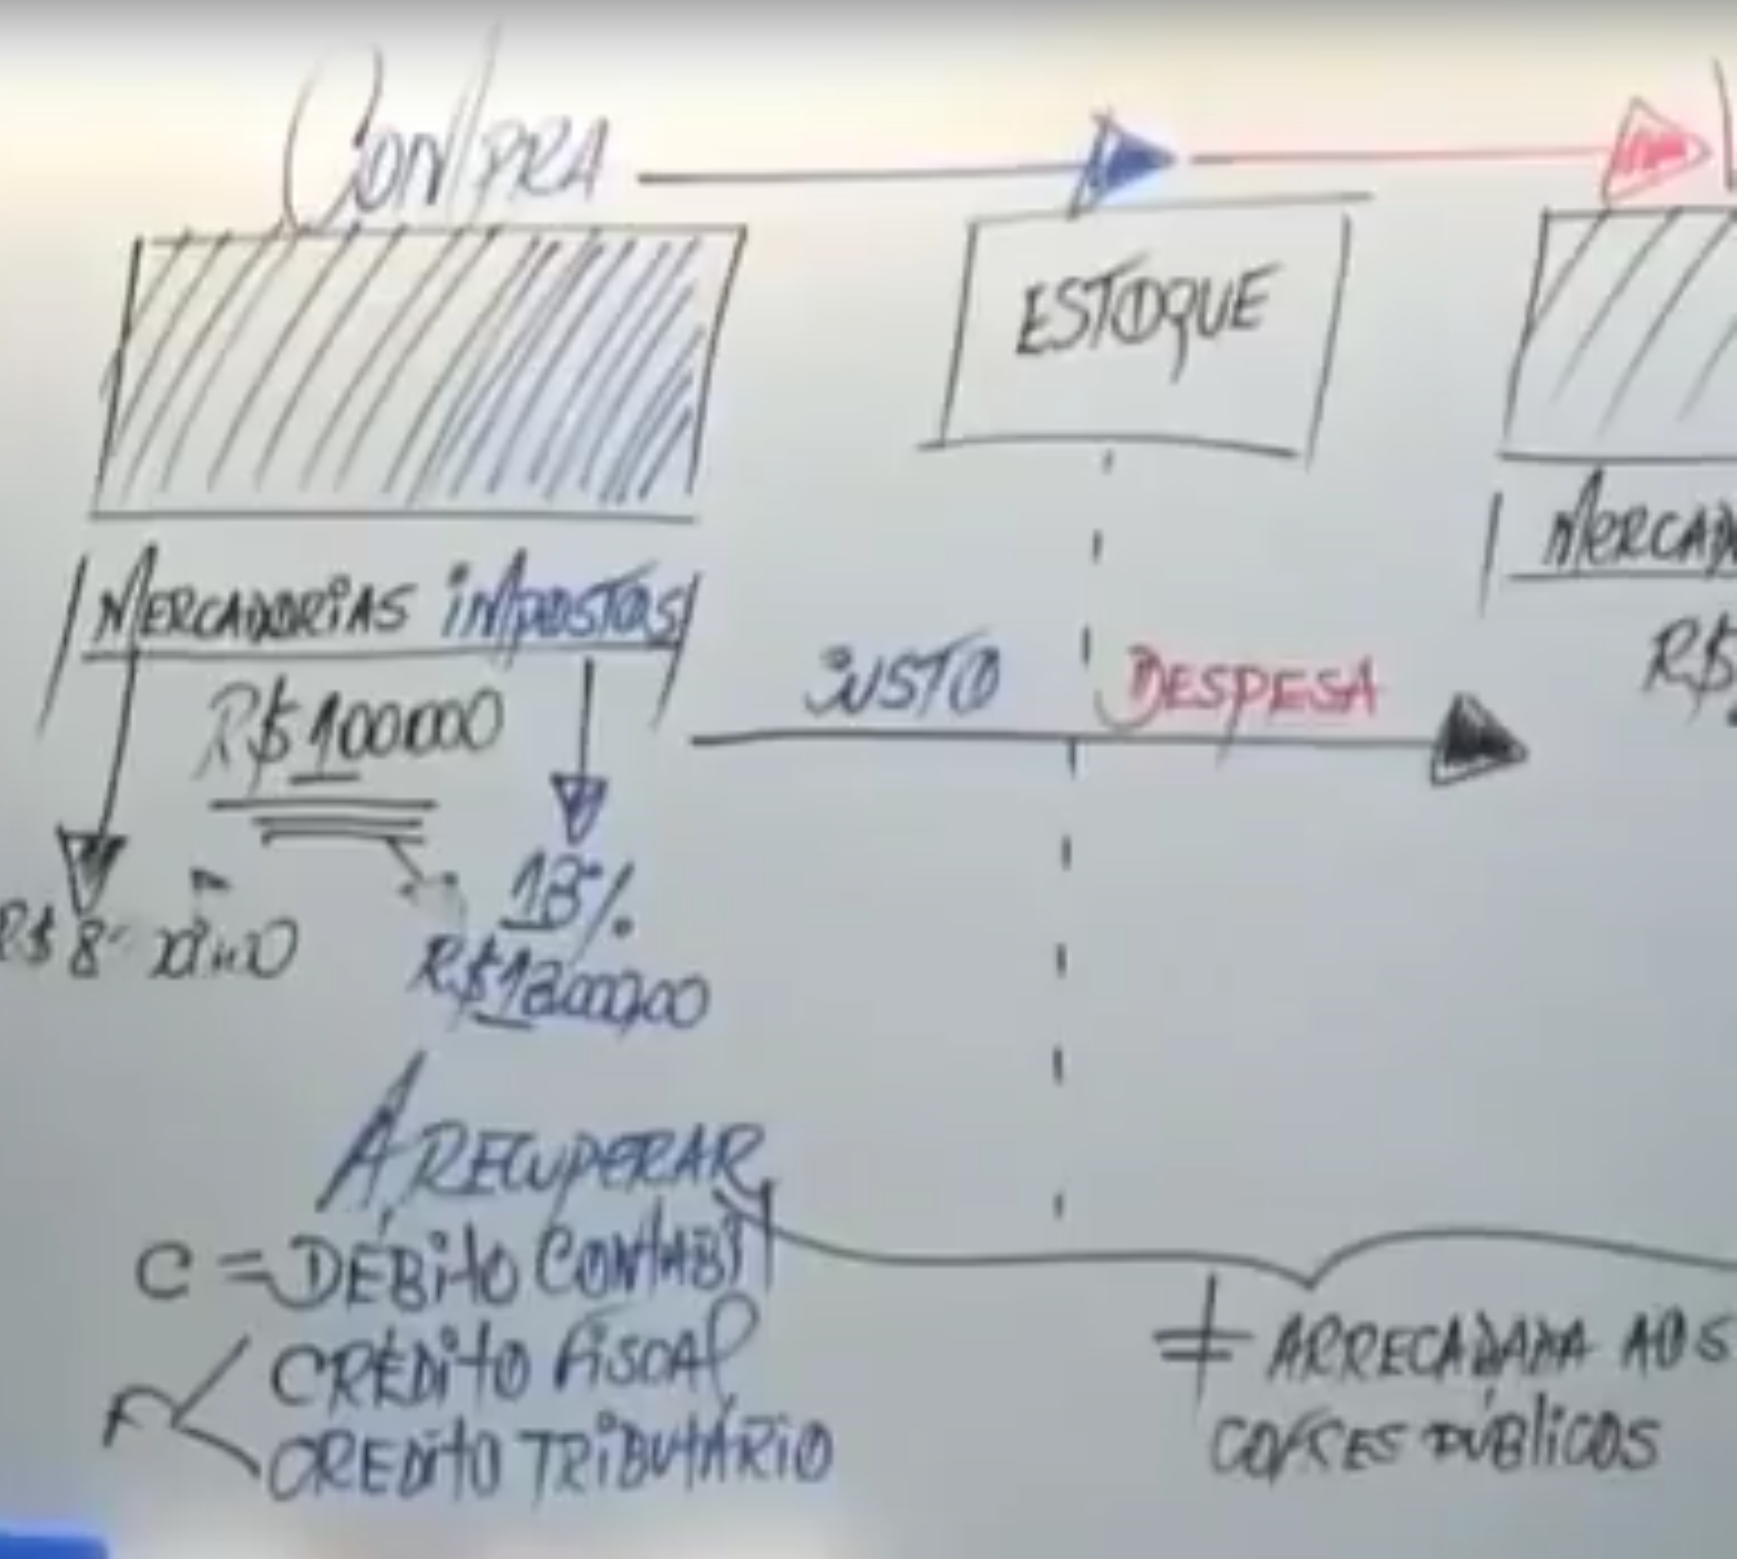 COMPRA
ESTOQUE
MERCADORIAS IMPOSTOS
MERCAD
R$ 100.000
R$
CUSTO
DESPESA
18%
R$ 18.000,00
A RECUPERAR
C = DÉBITO CONTÁBIL
F
CRÉDITO FISCAL
CRÉDITO TRIBUTÁRIO
≠ ARRECADADA AOS
COFRES PÚBLICOS